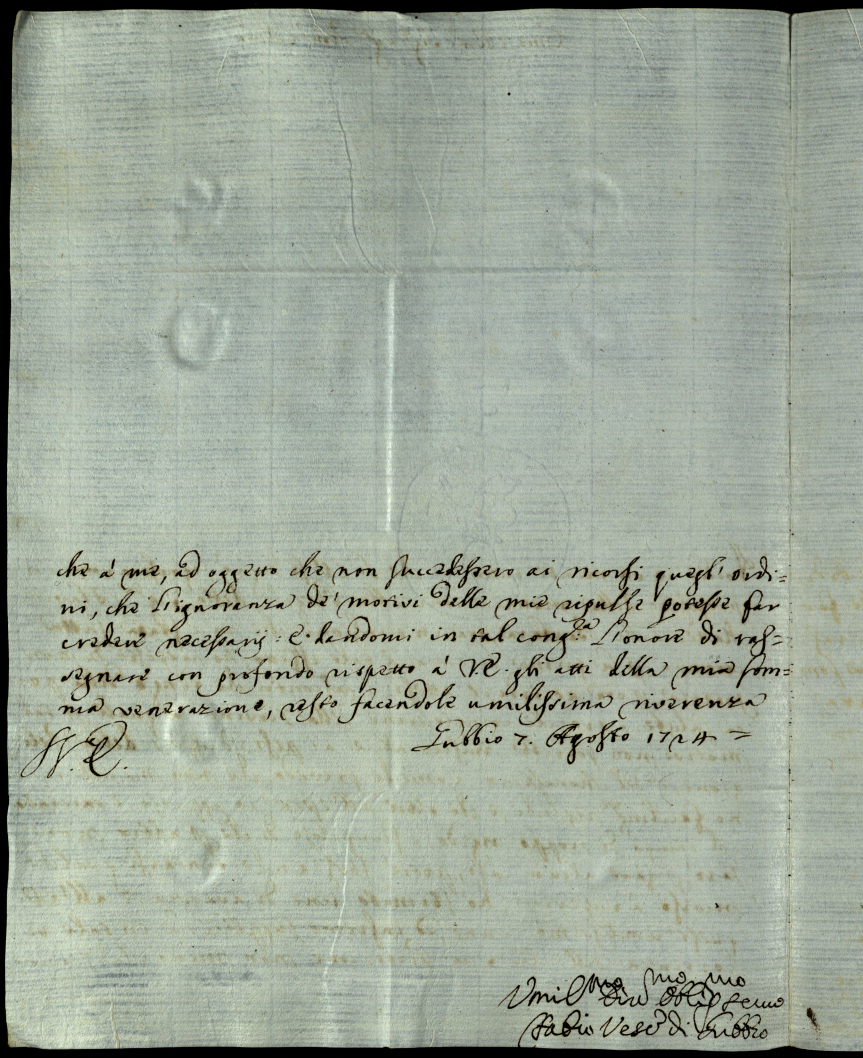 che à me, ad oggetto che non succedessero ai ricorsi quegl' ordi=
ni, che l'ignoranza de' motivi delle mie ripulse potesse far
credere necessarij: E dandomi in tal cong.ra l'onore di ras=
segnare con profondo rispetto à V.E. gli atti della mia som=
ma venerazione, resto facendole umilissima riverenza
Gubbio 7. Agosto 1724 =
V.E.
Umil.mo Div.mo Obblig.mo Servo
Fabio Vesc.o di Gubbio